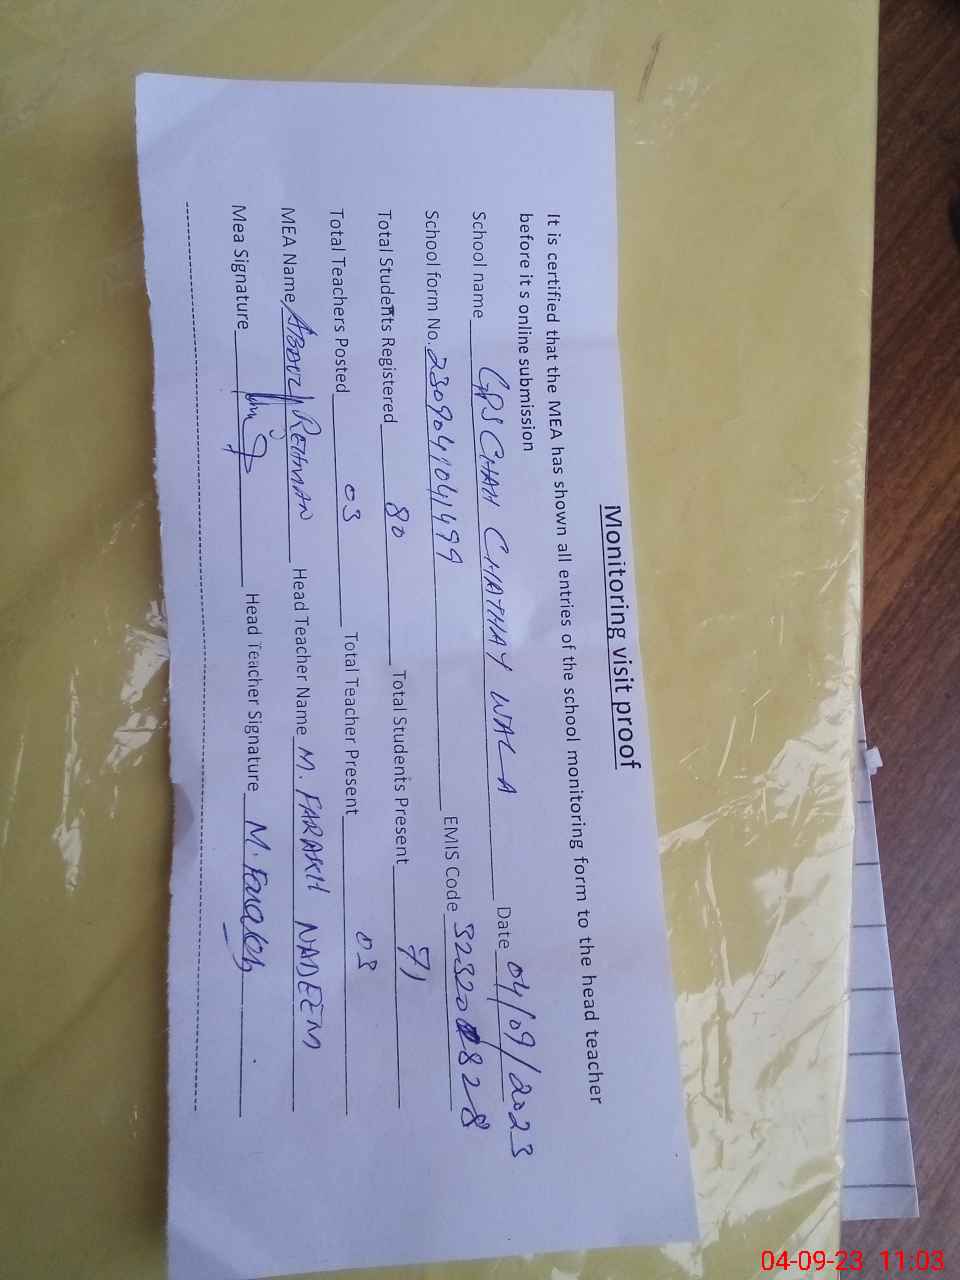 Monitoring visit proof
It is certified that the MEA has shown all entries of the school monitoring form to the head teacher
before it s online submission
School name GPS CHAH CHATHAY WALA Date 04/09/2023
School form No. 230904041499 EMIS Code 32320828
Total Students Registered 80 Total Students Present 71
Total Teachers Posted 03 Total Teacher Present 03
MEA Name ABDUL REHMAN Head Teacher Name M. FARAKH NADEEM
Mea Signature Head Teacher Signature M. Farakh
04-09-23 11:03